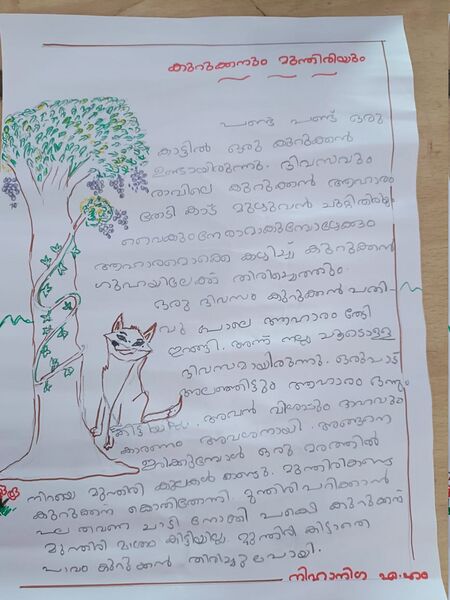 കുറുക്കനും മുന്തിരിയും
പണ്ട് പണ്ട് ഒരു
കാട്ടിൽ ഒരു കുറുക്കൻ
ഉണ്ടായിരുന്നു. ദിവസവും
രാവിലെ കുറുക്കൻ ആഹാരം
തേടി കാട് മുഴുവൻ ചുറ്റിതിരിയും
വൈകുംനേരാവുമ്പോഴേക്കും
ആഹാരമൊക്കെ കഴിച്ച് കുറുക്കൻ
ഗുഹയിലേക്ക് തിരിച്ചെത്തും.
ഒരു ദിവസം കുറുക്കൻ പതി-
വു പോലെ ആഹാരം തേടി
ഇറങ്ങി. അന്ന് നല്ല ചൂടൊള്ള
ദിവസമായിരുന്നു. ഒരുപാട്
അലഞ്ഞിട്ടും ആഹാരം ഒന്നും
കിട്ടിയില്ല. അവൻ വിശപ്പും ദാഹവും
കാരണം അവശനായി. അങ്ങനെ
ഇരിക്കുമ്പോൾ ഒരു മരത്തിൽ
നിറയെ മുന്തിരി കുലകൾ കണ്ടു. മുന്തിരികണ്ട
കുറുക്കന് കൊതിതോന്നി. മുന്തിരി പറിക്കാൻ
പല തവണ ചാടി നോക്കി പക്ഷെ കുറുക്കന്
മുന്തിരി മാത്രം കിട്ടിയില്ല. മുന്തിരി കിട്ടാതെ
പാവം കുറുക്കൻ തിരിച്ചുപോയി.
നിഹാനിഗ എ.എം